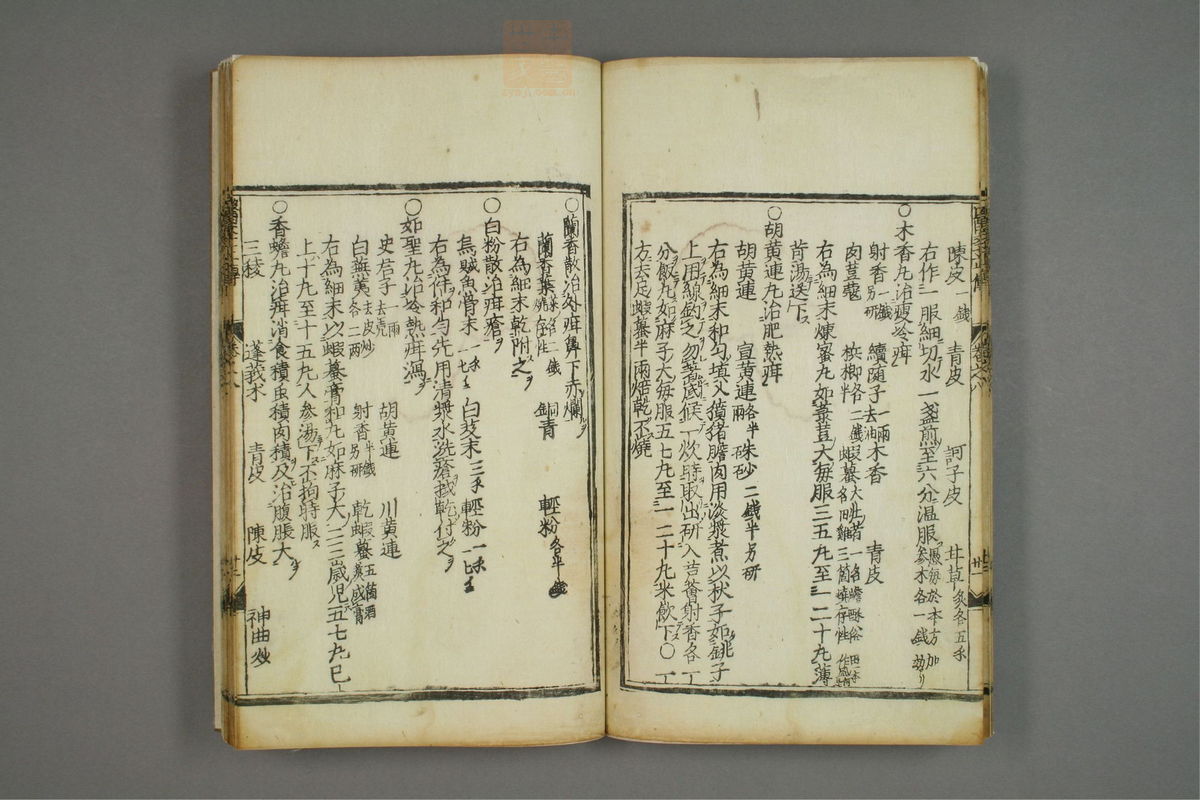 陳皮一錢 青皮 訶子皮 甘草炙各五分
右作一服細切水一盞煎至六八分温服
○木香丸治疳冷疳
射香另研 續随子去油一兩 木香 青皮
肉荳蔲 梹榔各二錢半 蝦蟇大 者一名 三箇燒存性
右為細末煉蜜丸如菉荳大每服三五丸至一二十丸薄
苛湯送下
○胡黄連丸治肥熱疳
胡黄連 宣黄連各半兩 朱砂二錢半另研
右為細末和匀填入獖猪膽肉用淡漿煮以杖子如銚子
上用線釣之勿著底候一炊時取出研入吉薈射香各一
分飯丸如麻子大每服五七丸至一二十丸米飲下○一
方去足蝦蟇半兩焙乾不燒
○蘭香散治 疳鼻下赤爛
蘭香葉燒存性二錢 銅青 輕粉各半錢
右為細末乾附之
○白粉散治疳瘡
烏賊魚骨末一分 白芨末三分 輕粉一分
右為件和匀先用清漿水洗瘡拭乾付之
○如聖丸治冷熱疳瀉
史君子去壳一兩 胡黄連 川黄連
白蕪荑去皮炒各二兩 射香半錢另研 乾蝦蟇五箇酒
右為細末以蝦蟇膏和丸如麻子大二三歳児五七丸已
上十丸至十五丸人参湯下不拘時服
○香蟾丸治疳消食積虫積肉積及治腹脹大
三稜 蓬莪朮 青皮 陳皮 神曲炒